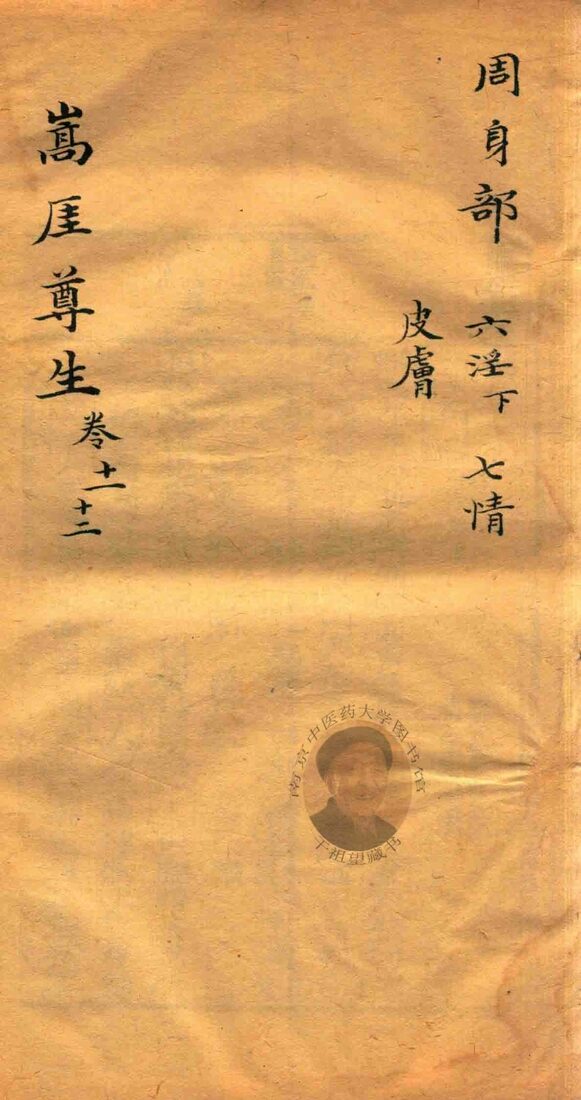 周身部 六淫下 七情
皮膚
嵩厓尊生 卷十一 十二
南京中医药大学图书馆
干祖望藏书